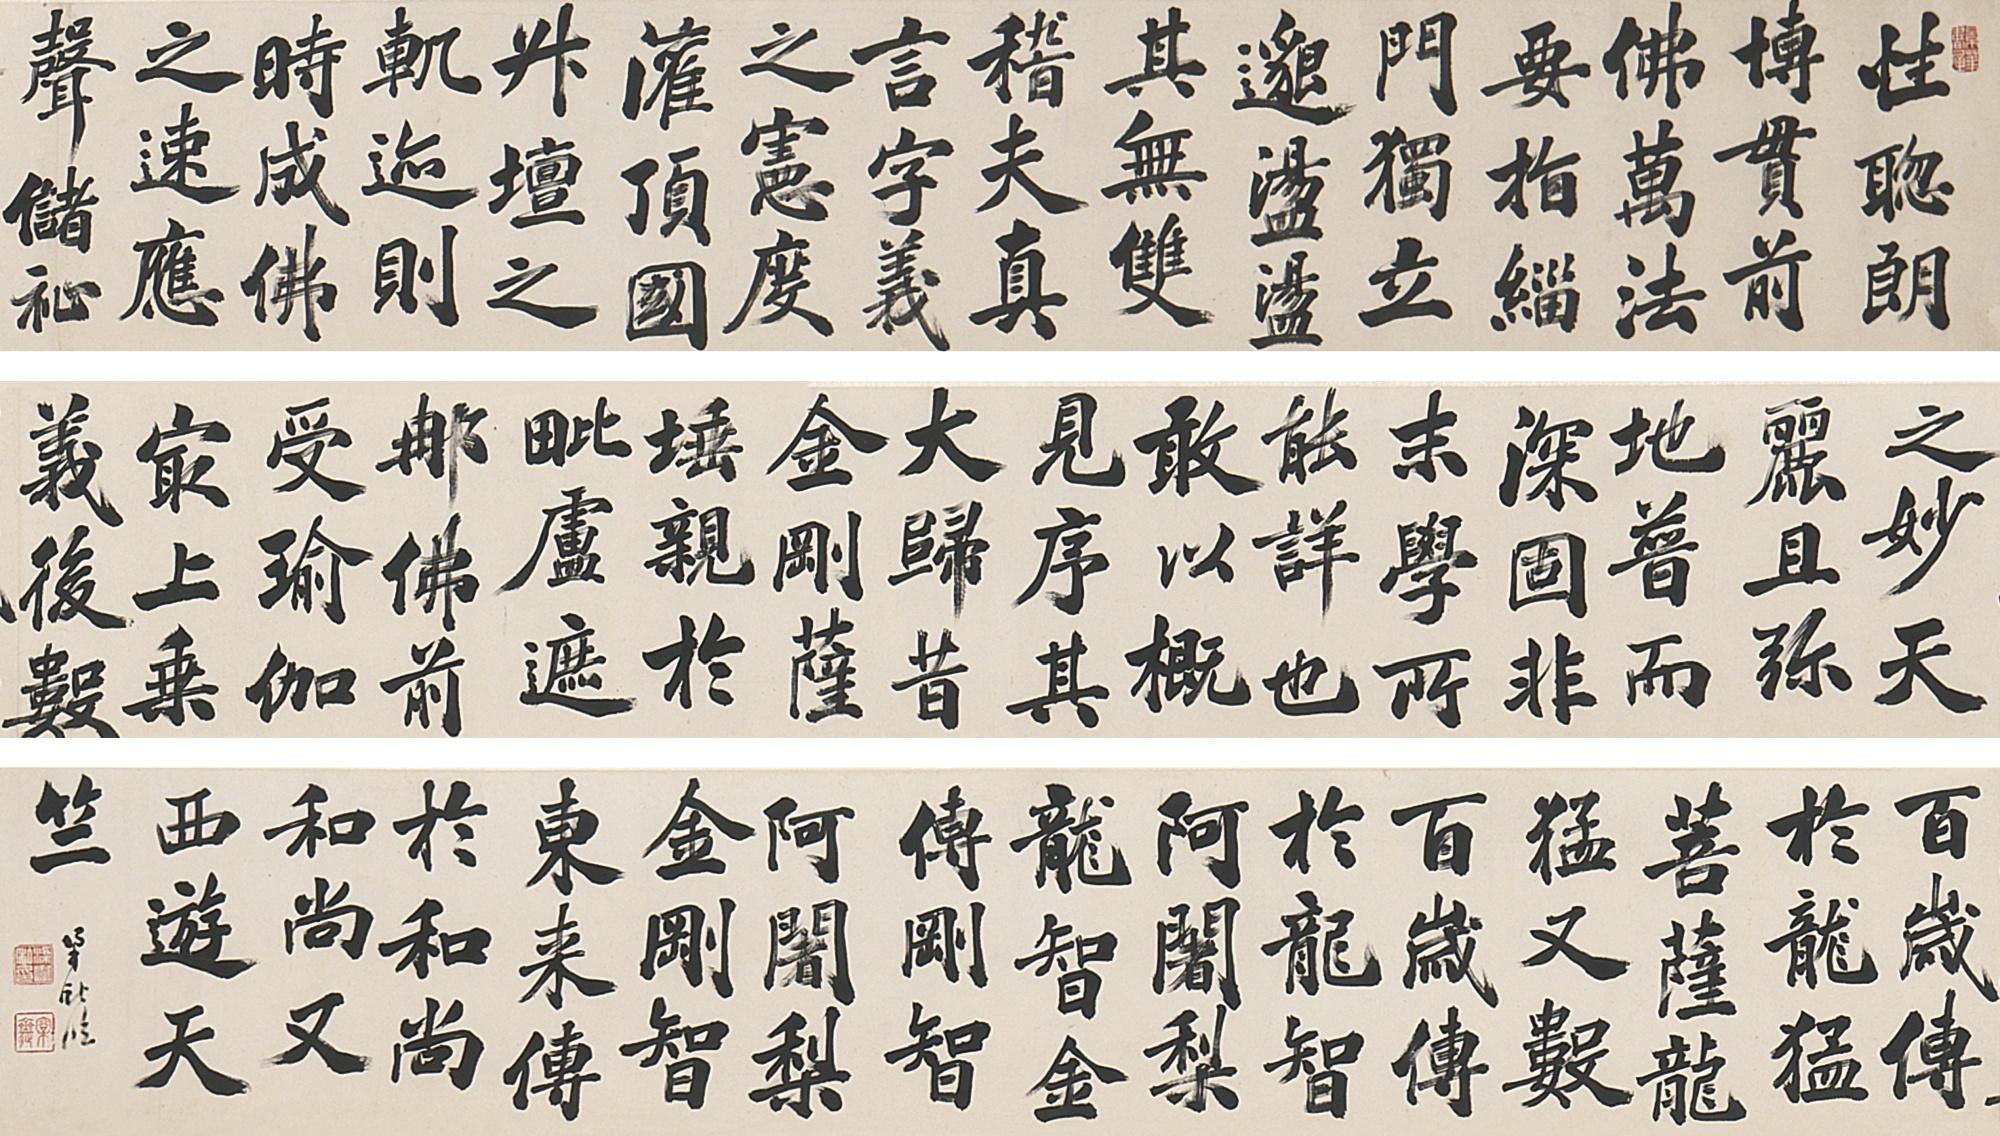 性聡朗
博貫前
佛萬法
要指緇
門獨立
邈盪盪
其無雙
稽夫真
言字義
之憲度
灌頂國
升壇之
軌迹則
時成佛
之速應
聲儲祉
之妙天
麗且弥
地普而
深固非
末學所
能詳也
敢以概
見序其
大歸昔
金剛薩
埵親於
毗盧遮
那佛前
受瑜伽
冣上乗
義後數
百歲傳
於龍猛
菩薩龍
猛又數
百歲傳
於龍智
阿闍梨
龍智金
傳剛智
阿闍梨
金剛智
東来傳
於和尚
和尚又
西遊天
竺